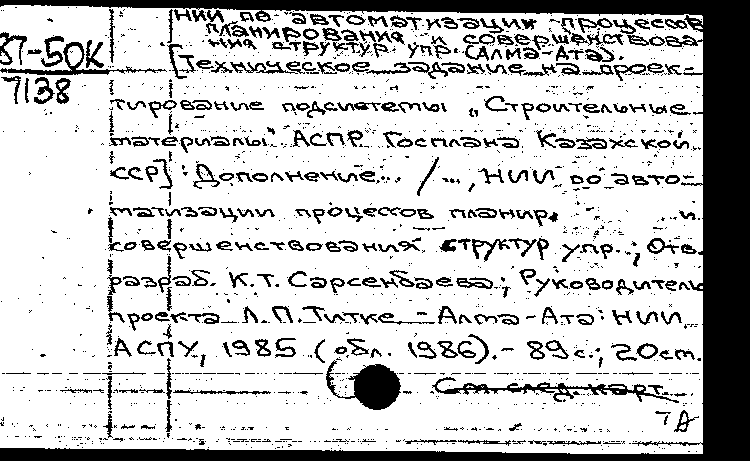 НИИ по автоматизации процессов
планирования и совершенствова-
ния структур упр. (Алма-Ата).
87-50К
7138
[Техническое задание на проек-
тирование подсистемы „Строительные
материалы" АСПР Госплана Казахской
ССР]: Дополнение... /..., НИИ по авто-
матизации процессов планир. и
совершенствования структур упр.; Отв.
разраб. К.Т. Сарсенбаева; Руководитель
проекта Л.П.Титке. - Алма-Ата: НИИ
АСПУ, 1985 (обл. 1986).- 89 с.; 20см.
См. след. карт.